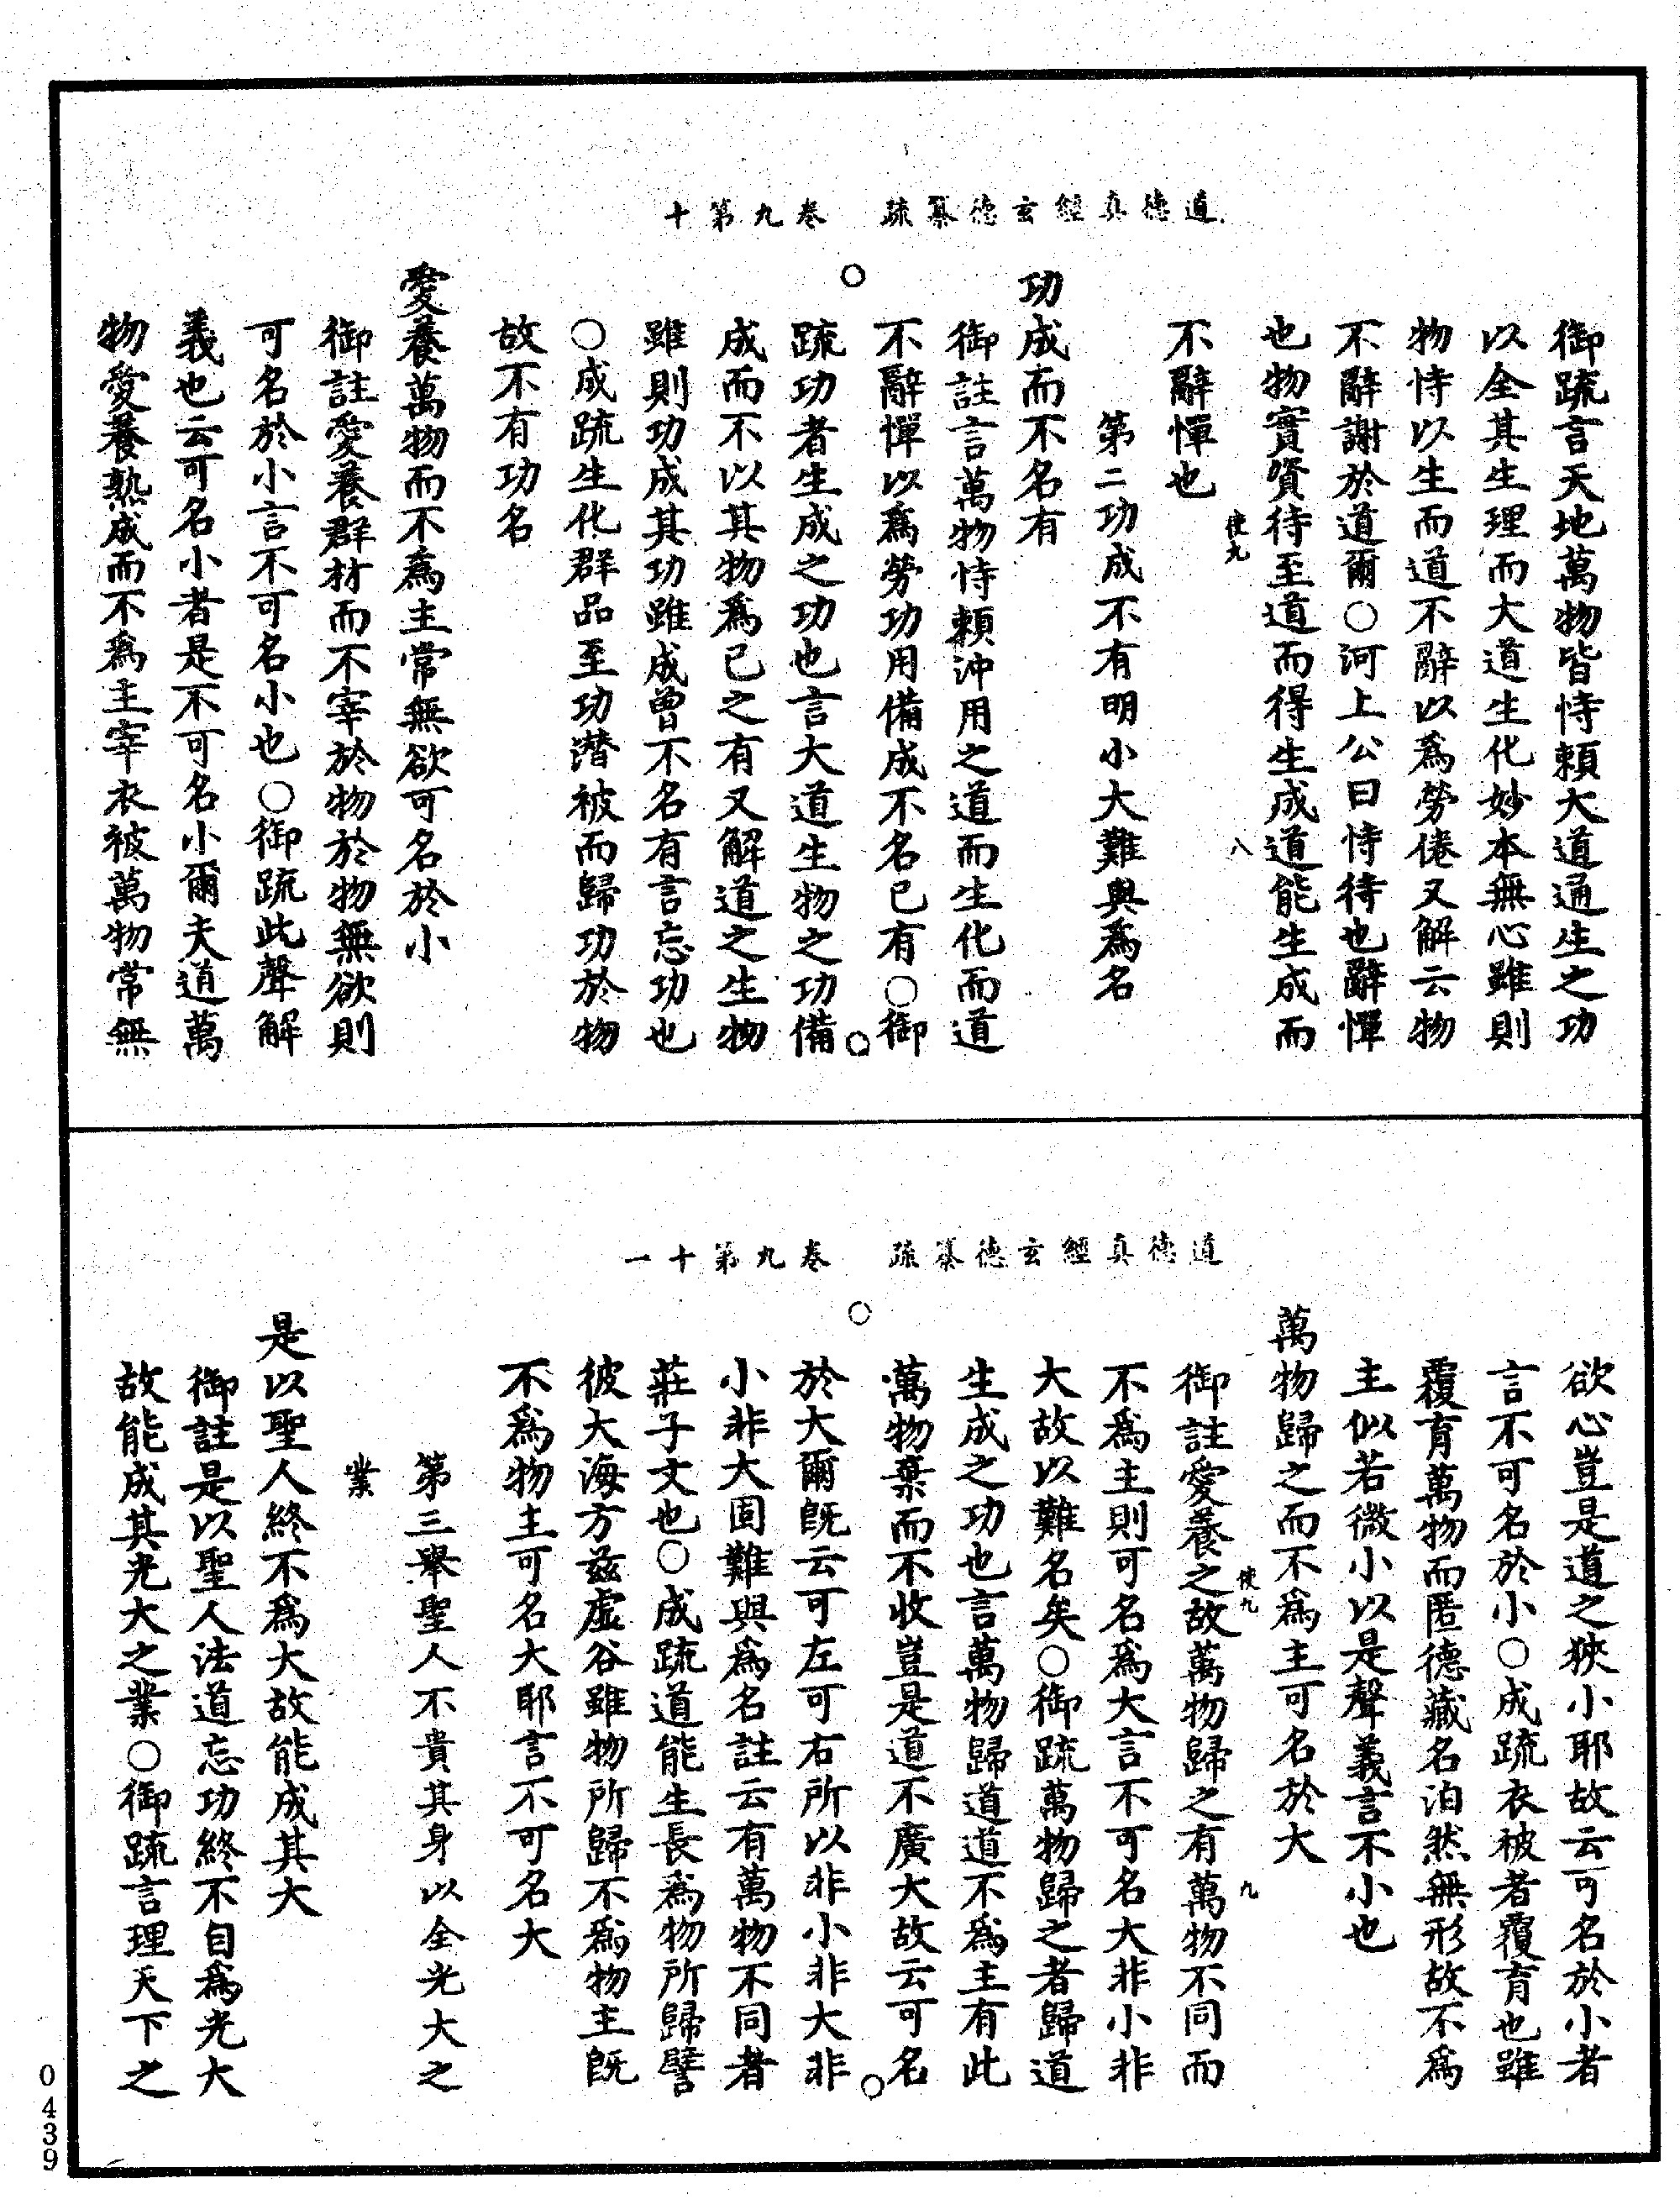 道德真經玄德纂疏　卷九第十
御疏言天地萬物皆恃賴大道通生之功
以全其生理而大道生化妙本無心雖則
物恃以生而道不辭以爲勞倦又解云物
不辭謝於道爾○河上公曰恃待也辭憚
也物實資待至道而得生成道能生成而
使九　八
不辭憚也
第二功成不有明小大難與爲名
功成而不名有
御註言萬物恃賴沖用之道而生化而道
不辭憚以爲勞功用備成不名已有○御
疏功者生成之功也言大道生物之功備
成而不以其物爲已之有又解道之生物
雖則功成其功雖成曾不名有言忘功也
○成疏生化群品至功潛被而歸功於物
故不有功名
愛養萬物而不爲主常無欲可名於小
御註愛養群材而不宰於物於物無欲則
可名於小言不可名小也○御疏此聲解
義也云可名小者是不可名小爾夫道萬
物愛養熟成而不爲主宰衣被萬物常無
道德真經玄德纂疏　卷九第十一
欲心豈是道之狹小耶故云可名於小者
言不可名於小○成疏衣被者覆育也雖
覆育萬物而匿德藏名泊然無形故不爲
主似若微小以是聲義言不小也
萬物歸之而不爲主可名於大
使九　九
御註愛養之故萬物歸之有萬物不同而
不爲主則可名爲大言不可名大非小非
大故以難名矣○御疏萬物歸之者歸道
生成之功也言萬物歸道道不爲主有此
萬物棄而不收豈是道不廣大故云可名
於大爾旣云可左可右所以非小非大非
小非大固難與爲名註云有萬物不同者
莊子文也○成疏道能生長爲物所歸譬
彼大海方茲虛谷雖物所歸不爲物主旣
不爲物主可名大耶言不可名大
第三舉聖人不貴其身以全光大之
業
是以聖人終不爲大故能成其大
御註是以聖人法道忘功終不自爲光大
故能成其光大之業○御疏言理天下之
0439